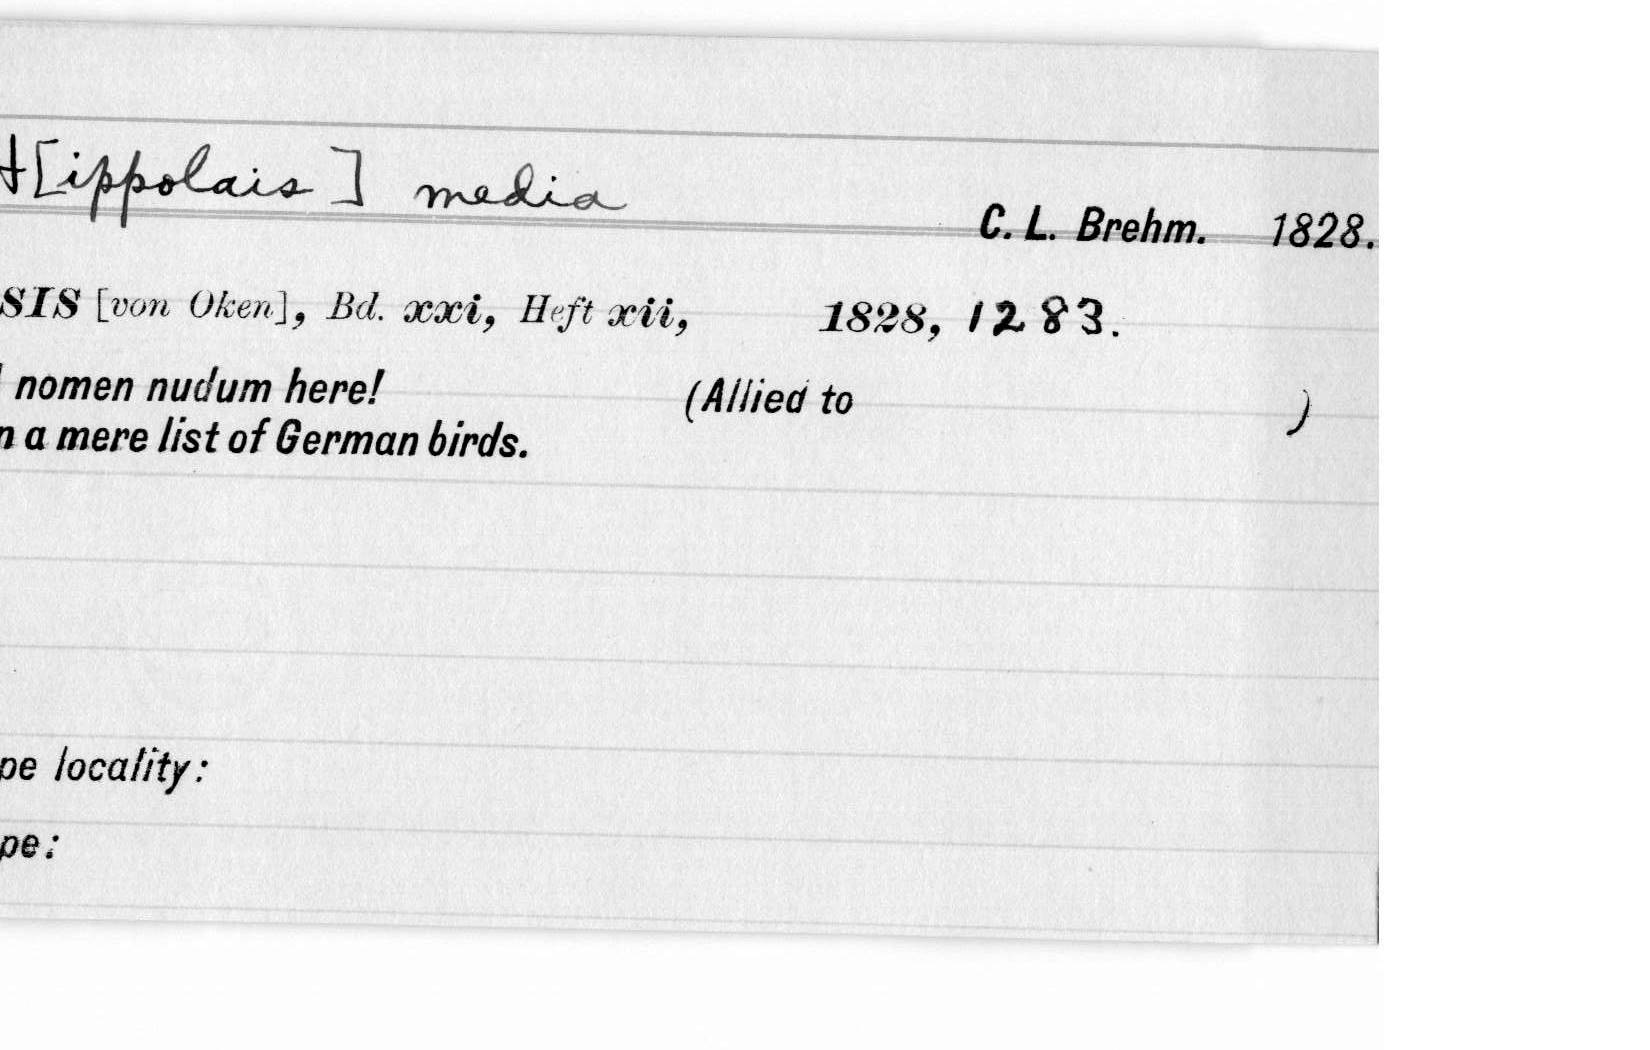 H[ippolais] media
C. L. Brehm. 1828.
SIS [von Oken], Bd. xxi, Heft xii, 1828, 1283.
nomen nudum here! (Allied to )
n a mere list of German birds.
pe locality:
pe: